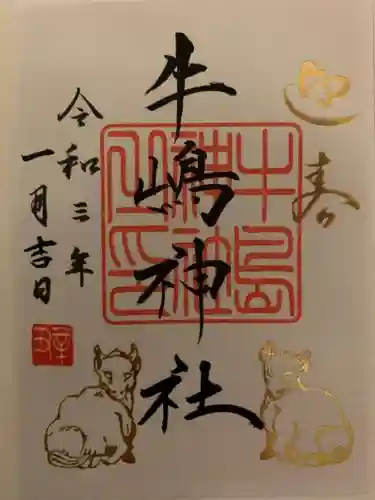 寿
牛嶋神社
牛島
神社
之印
令和三年
一月吉日
辛丑